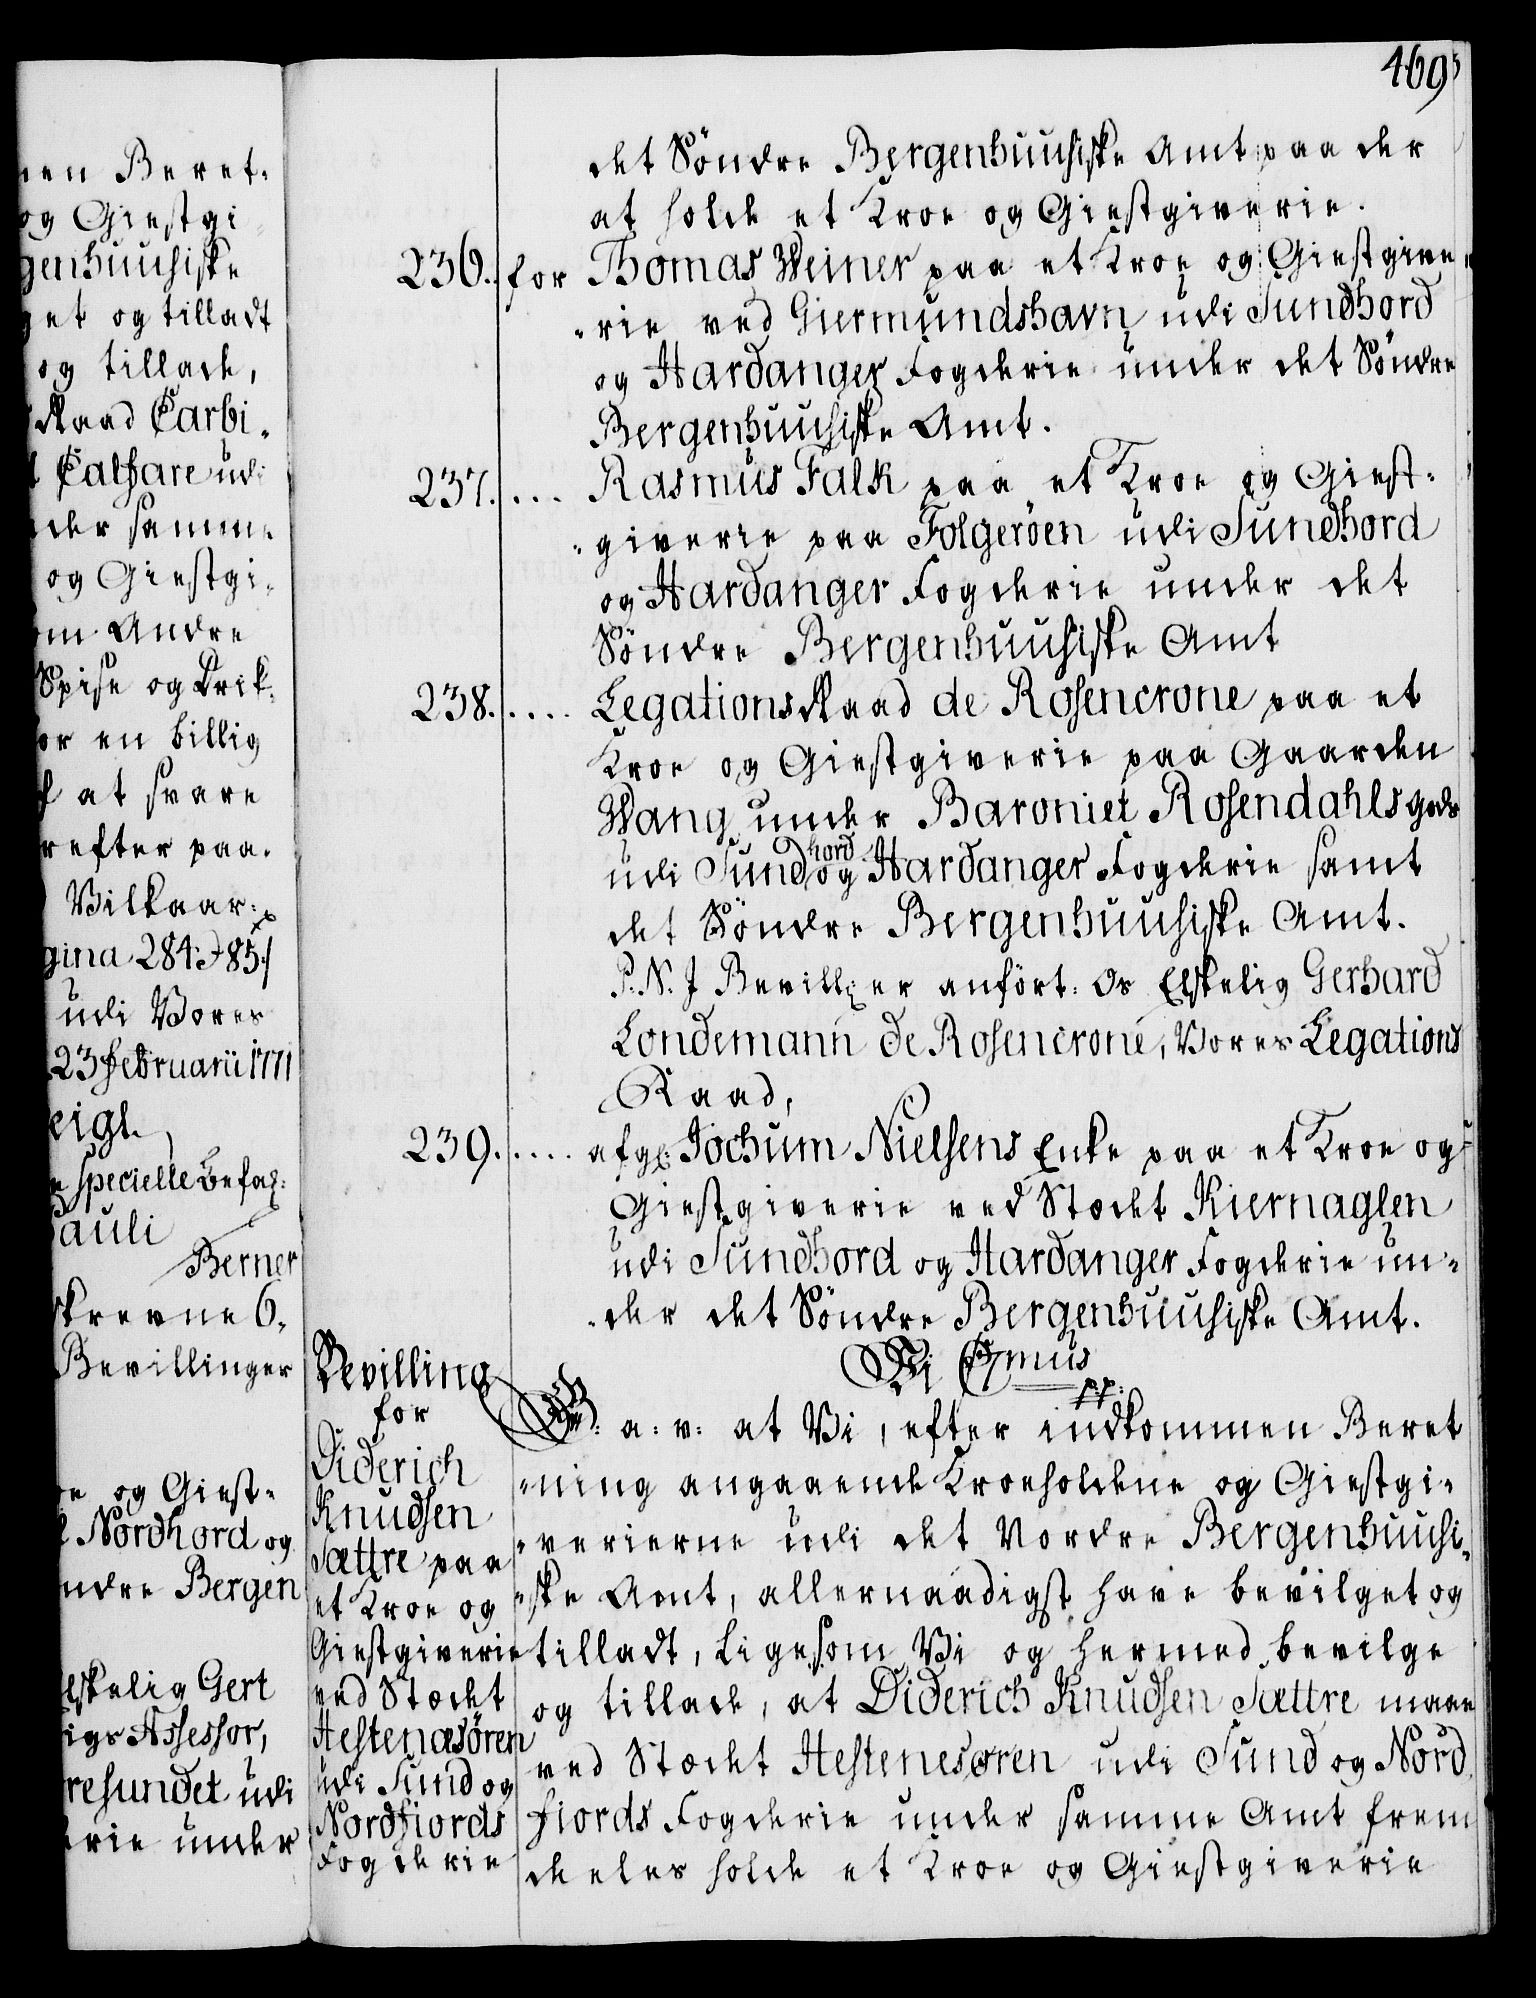 469
nen Beret-
og Giestgi
genhuusiske
get og tilladt
og tillade,
Raad Carbi-
Calfare udi
der samme
og Giestgi-
om Andre
Spise og Drik-
for en billig
at svare
refter paa-
Vilkaar:
gina 284 & 85:/
udi Vores
23 Februarii 1771
eigl.
specielle Befal:
Pauli
Berner
skrevne 6,
Bevillinger
oe og Giest-
Nordhord og
ndre Bergen
lskelig Gert
igs Assessor,
resundet udi
erie under
det Söndre Bergenhuusiske Amt paa der
at holde et Kroe og Giestgiverie.
236. for Thomas Weiner paa et Kroe og Giestgive-
-rie ved Giermundshavn udi Sundhord
og Hardanger Fogderie under det Söndre
Bergenhuusiske Amt.
237. ... Rasmus Falk paa et Kroe og Giest-
-giverie paa Folgeröen udi Sundhord
og Hardanger Fogderie under det
Söndre Bergenhuusiske Amt
238. .... Legations Raad de Rosencrone paa et
Kroe og Giestgiverie paa Gaarden
Wang under Baroniet Rosendahls gods
udi Sundhord og Hardanger Fogderie samt
det Söndre Bergenhuusiske Amt.
P. N. J Bevill: er anfört: Os Elskelig Gerhard
Londemann de Rosencrone, Vores Legations
Raad,
239. .... afg: Jochum Nielsens Enke paa et Kroe og
Giestgiverie ved Stædet Kiernaglen
udi Sundhord og Hardanger Fogderie un-
-der det Söndre Bergenhuusiske Amt.
Vi C 7mus pp:
Bevilling
for
Diderich
Knudsen
Sættre paa
et Kroe og
Giestgiverie
ved Stædet
Hestenæsören
udi Sund og
Nordfiords
Fogderie
G: a: v: at Vi, efter indkommen Beret
-ning angaaende Kroeholdene og Giestgi-
-verierne udi det Nordre Bergenhuusi-
-ske Amt, allernaadigst have bevilget og
tilladt, Ligesom Vi og hermed bevilge
og tillade, at Diderich Knudsen Sættre maae
ved Stædet Hestenesøren udi Sund og Nord
fiords Fogderie under samme Amt frem
deeles holde et Kroe og Giestgiverie